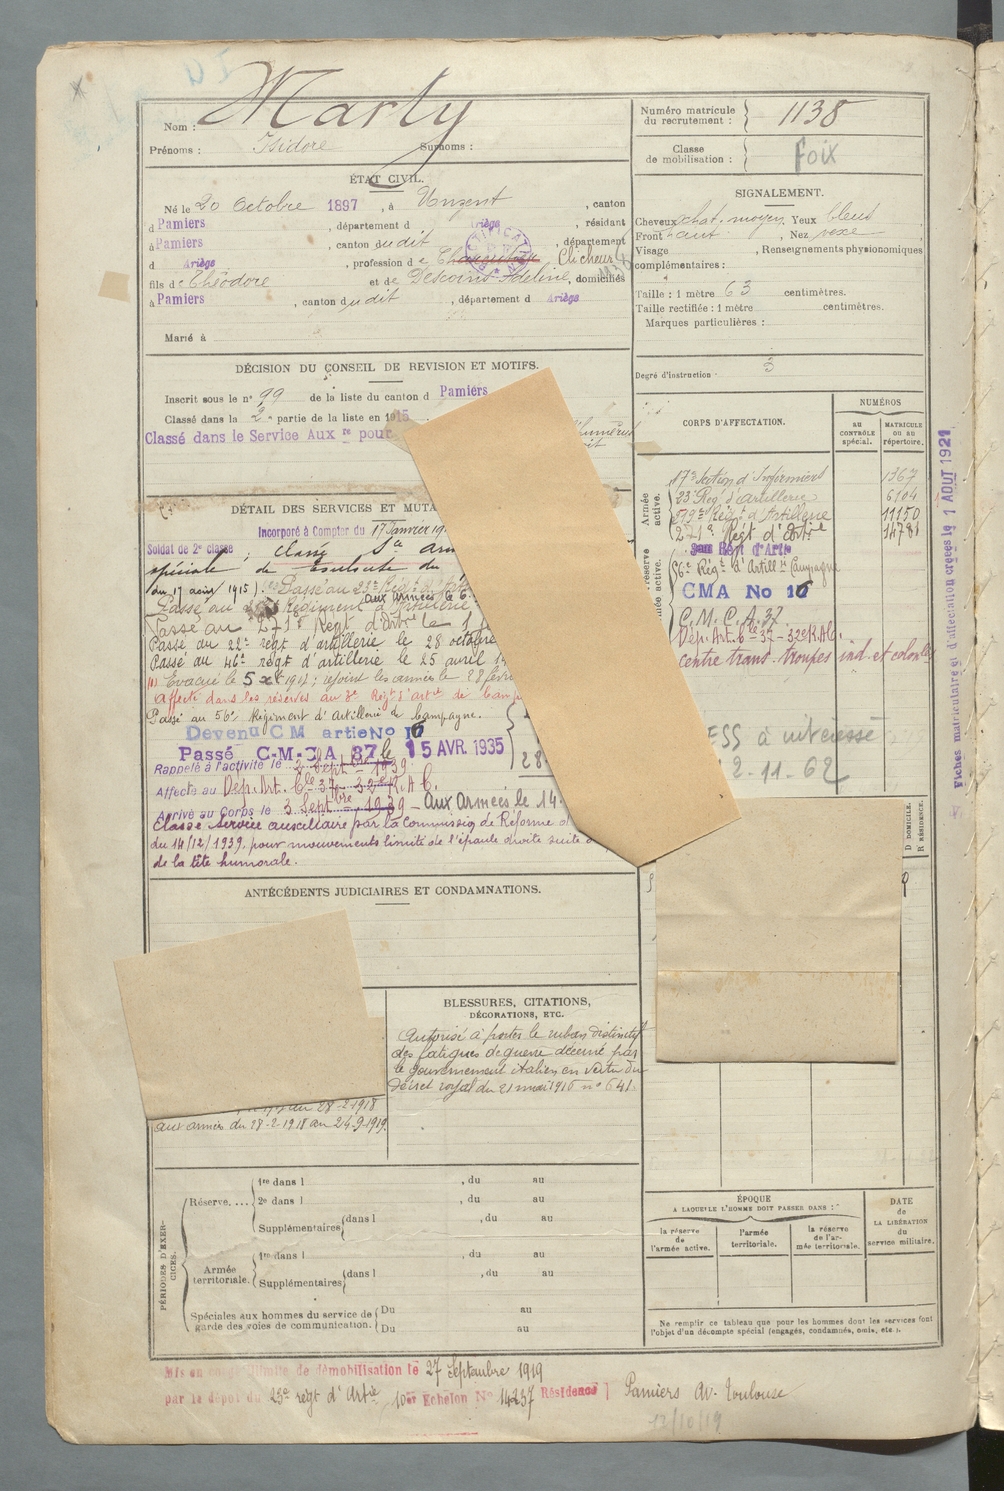 Nom : Marty
Prénoms : Isidore Surnoms :
Numéro matricule du recrutement : 1138
Classe de mobilisation : Foix
ÉTAT CIVIL.
Né le 20 Octobre 1897, à Unzent, canton
d Pamiers, département d Ariège, résidant
à Pamiers, canton dudit, département
d Ariège, profession de Clicheur
fils de Théodore et de Descoins Adeline, domiciliés
à Pamiers, canton dudit, département d Ariège
Marié à
SIGNALEMENT.
Cheveux chat. moyen Yeux bleus
Front haut, Nez
Visage, Renseignements physionomiques
complémentaires :
Taille : 1 mètre 63 centimètres.
Taille rectifiée : 1 mètre centimètres.
Marques particulières :
Degré d'instruction 3
DÉCISION DU CONSEIL DE REVISION ET MOTIFS.
Inscrit sous le n° 99 de la liste du canton d Pamiers
Classé dans la 2e partie de la liste en 1915
Classé dans le Service Auxre pour
CORPS D'AFFECTATION.
NUMÉROS
AU CONTRÔLE spécial.
MATRICULE OU AU répertoire.
Armée active.
17e Section d'Infirmiers 1367
23e Rég. d'Artillerie 6104
Régt d'Artillerie 11150
271e Régt d'Artie 14781
Régt d'Artie
56e Régt d'Artillie Campagne
CMA No 16
C.M.C.A. 37
Dép. Art. 6le 37 - 32e R.A.C.
Centre trans. troupes ind. et colonles
ESS à intéressé
2-11-62
DÉTAIL DES SERVICES ET MUTA
Incorporé à Compter du 17 Janvier
Soldat de 2e classe ; classé Sce arm
spéciale de
du 17 août 1915). Passé au 23e Régt d'
aux armées le 6
Passé au Régiment d'Artillerie
Passé au 271e Régt d'Artie le 1
Passé au 22e régt d'artillerie le 28 octobre
Passé au 46e régt d'artillerie le 25 avril
Evacué le 5 ; rejoint les armées le 28 févr
Affecté dans les réserves au 3e Régt d'artie de Camp
Passé au 56e Régiment d'Artillerie de Campagne.
Devenu C M artie No 16
Passé C-M-C A 37 le 15 AVR. 1935
Rappelé à l'activité le 2 Septbre 1939
Affecté au Dép. Art. 6le 37 - 32e R.A.C.
Arrivé au Corps le 3 Septbre 1939 - Aux Armées le 14.
Classé Service auxiliaire par la Commission de Réforme d
du 14/12/1939, pour mouvements limités de l'épaule droite suite
de la tête humorale.
28
D DOMICILE.
R RÉSIDENCE.
ANTÉCÉDENTS JUDICIAIRES ET CONDAMNATIONS.
BLESSURES, CITATIONS,
DÉCORATIONS, ETC.
Autorisé à porter le ruban distinctif
des fatigues de guerre décerné par
le gouvernement italien en vertu du
Décret royal du 21 mai 1916 n° 641.
au 28-2-1918
aux armées du 28-2-1918 au 24-9-1919.
PÉRIODES D'EXERCICES.
Réserve....
1re dans l , du au
2e dans l , du au
Supplémentaires dans l , du au
Armée territoriale.
1re dans l , du au
Supplémentaires dans l , du au
Spéciales aux hommes du service de garde des voies de communication.
Du au
Du au
ÉPOQUE
A LAQUELLE L'HOMME DOIT PASSER DANS :
la réserve de l'armée active.
l'armée territoriale.
la réserve de l'armée territoriale.
DATE de LA LIBÉRATION du service militaire.
Ne remplir ce tableau que pour les hommes dont les services font
l'objet d'un décompte spécial (engagés, condamnés, omis, etc.).
Mis en congé illimité de démobilisation le 27 Septembre 1919
par le dépôt du 23e régt d'Artie 10e Echelon No 14237 Résidence Pamiers Av. Toulouse
12/10/19
Fiches matriculaire et d'affectation créées le 1 AOUT 1921